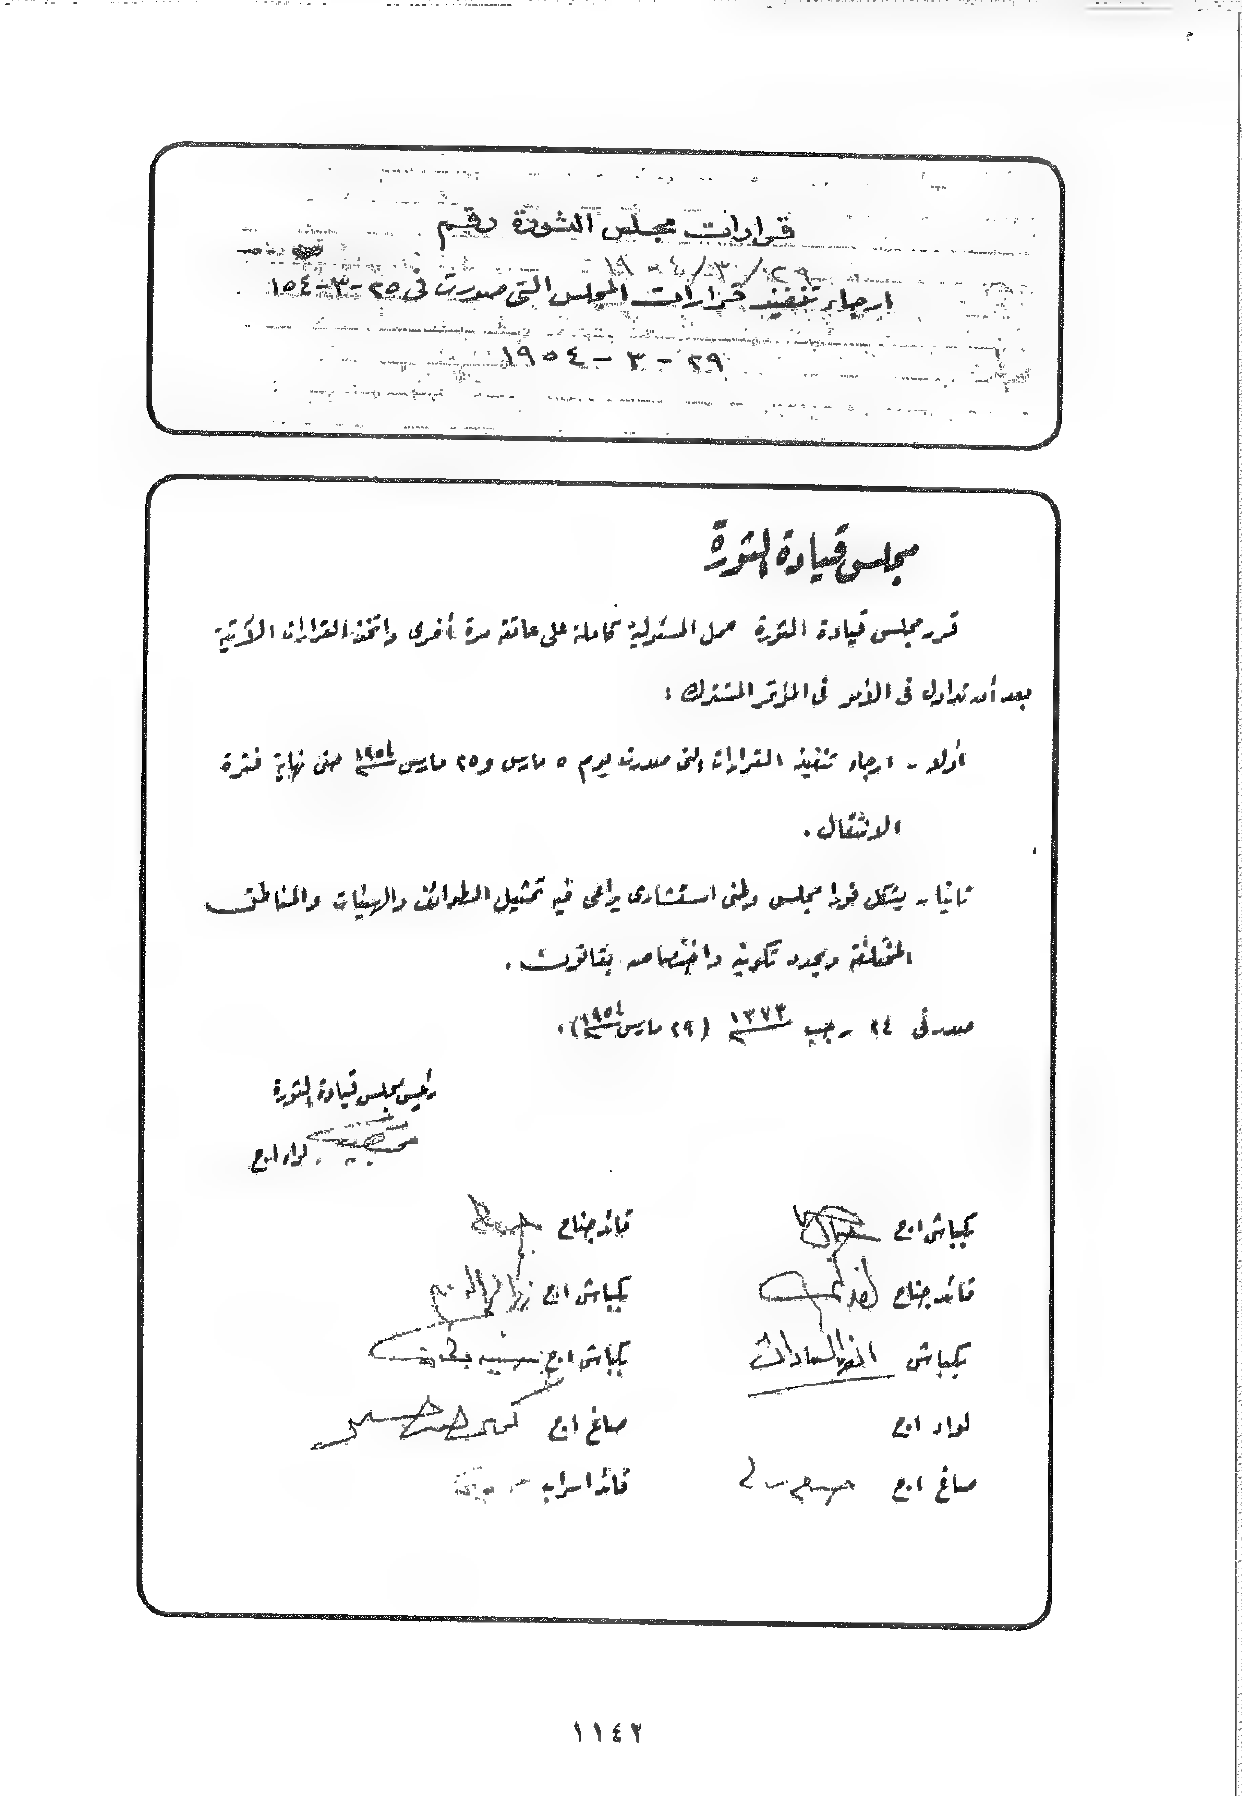 قرارات مجلس الثورة رقم
٢٩/٣/١٩٥٤
ارجاء تنفيذ قرارات المجلس التى صدرت فى ٢٥-٣-١٥٤
٢٩ - ٣ - ١٩٥٤
مجلس قيادة الثورة
قرر مجلس قيادة الثورة حمل المسئولية كاملة على عاتقه مرة أخرى واتخذ القرارات الآتية
بعد أن تداول فى الأمر فى المؤتمر المشترك :
أولا - ارجاء تنفيذ القرارات التى صدرت يوم ٥ مارس و٢٥ مارس ١٩٥٤ حتى نهاية فترة
الانتقال .
ثانيا - يشكل فورا مجلس وطنى استشارى يراعى فيه تمثيل الطوائف والهيئات والمناطق
المختلفة ويحدد تكوينه واختصاصه بقانون .
صدر فى ٢٤ رجب ١٣٧٣ (٢٩ مارس ١٩٥٤) .
رئيس مجلس قيادة الثورة
لواء ا.ح
بكباشى ا.ح
قائد جناح
قائد جناح
بكباشى ا.ح
بكباشى انور السادات
بكباشى ا.ح
لواء ا.ح
صاغ ا.ح
صاغ ا.ح
قائد اسراب
١١٤٢